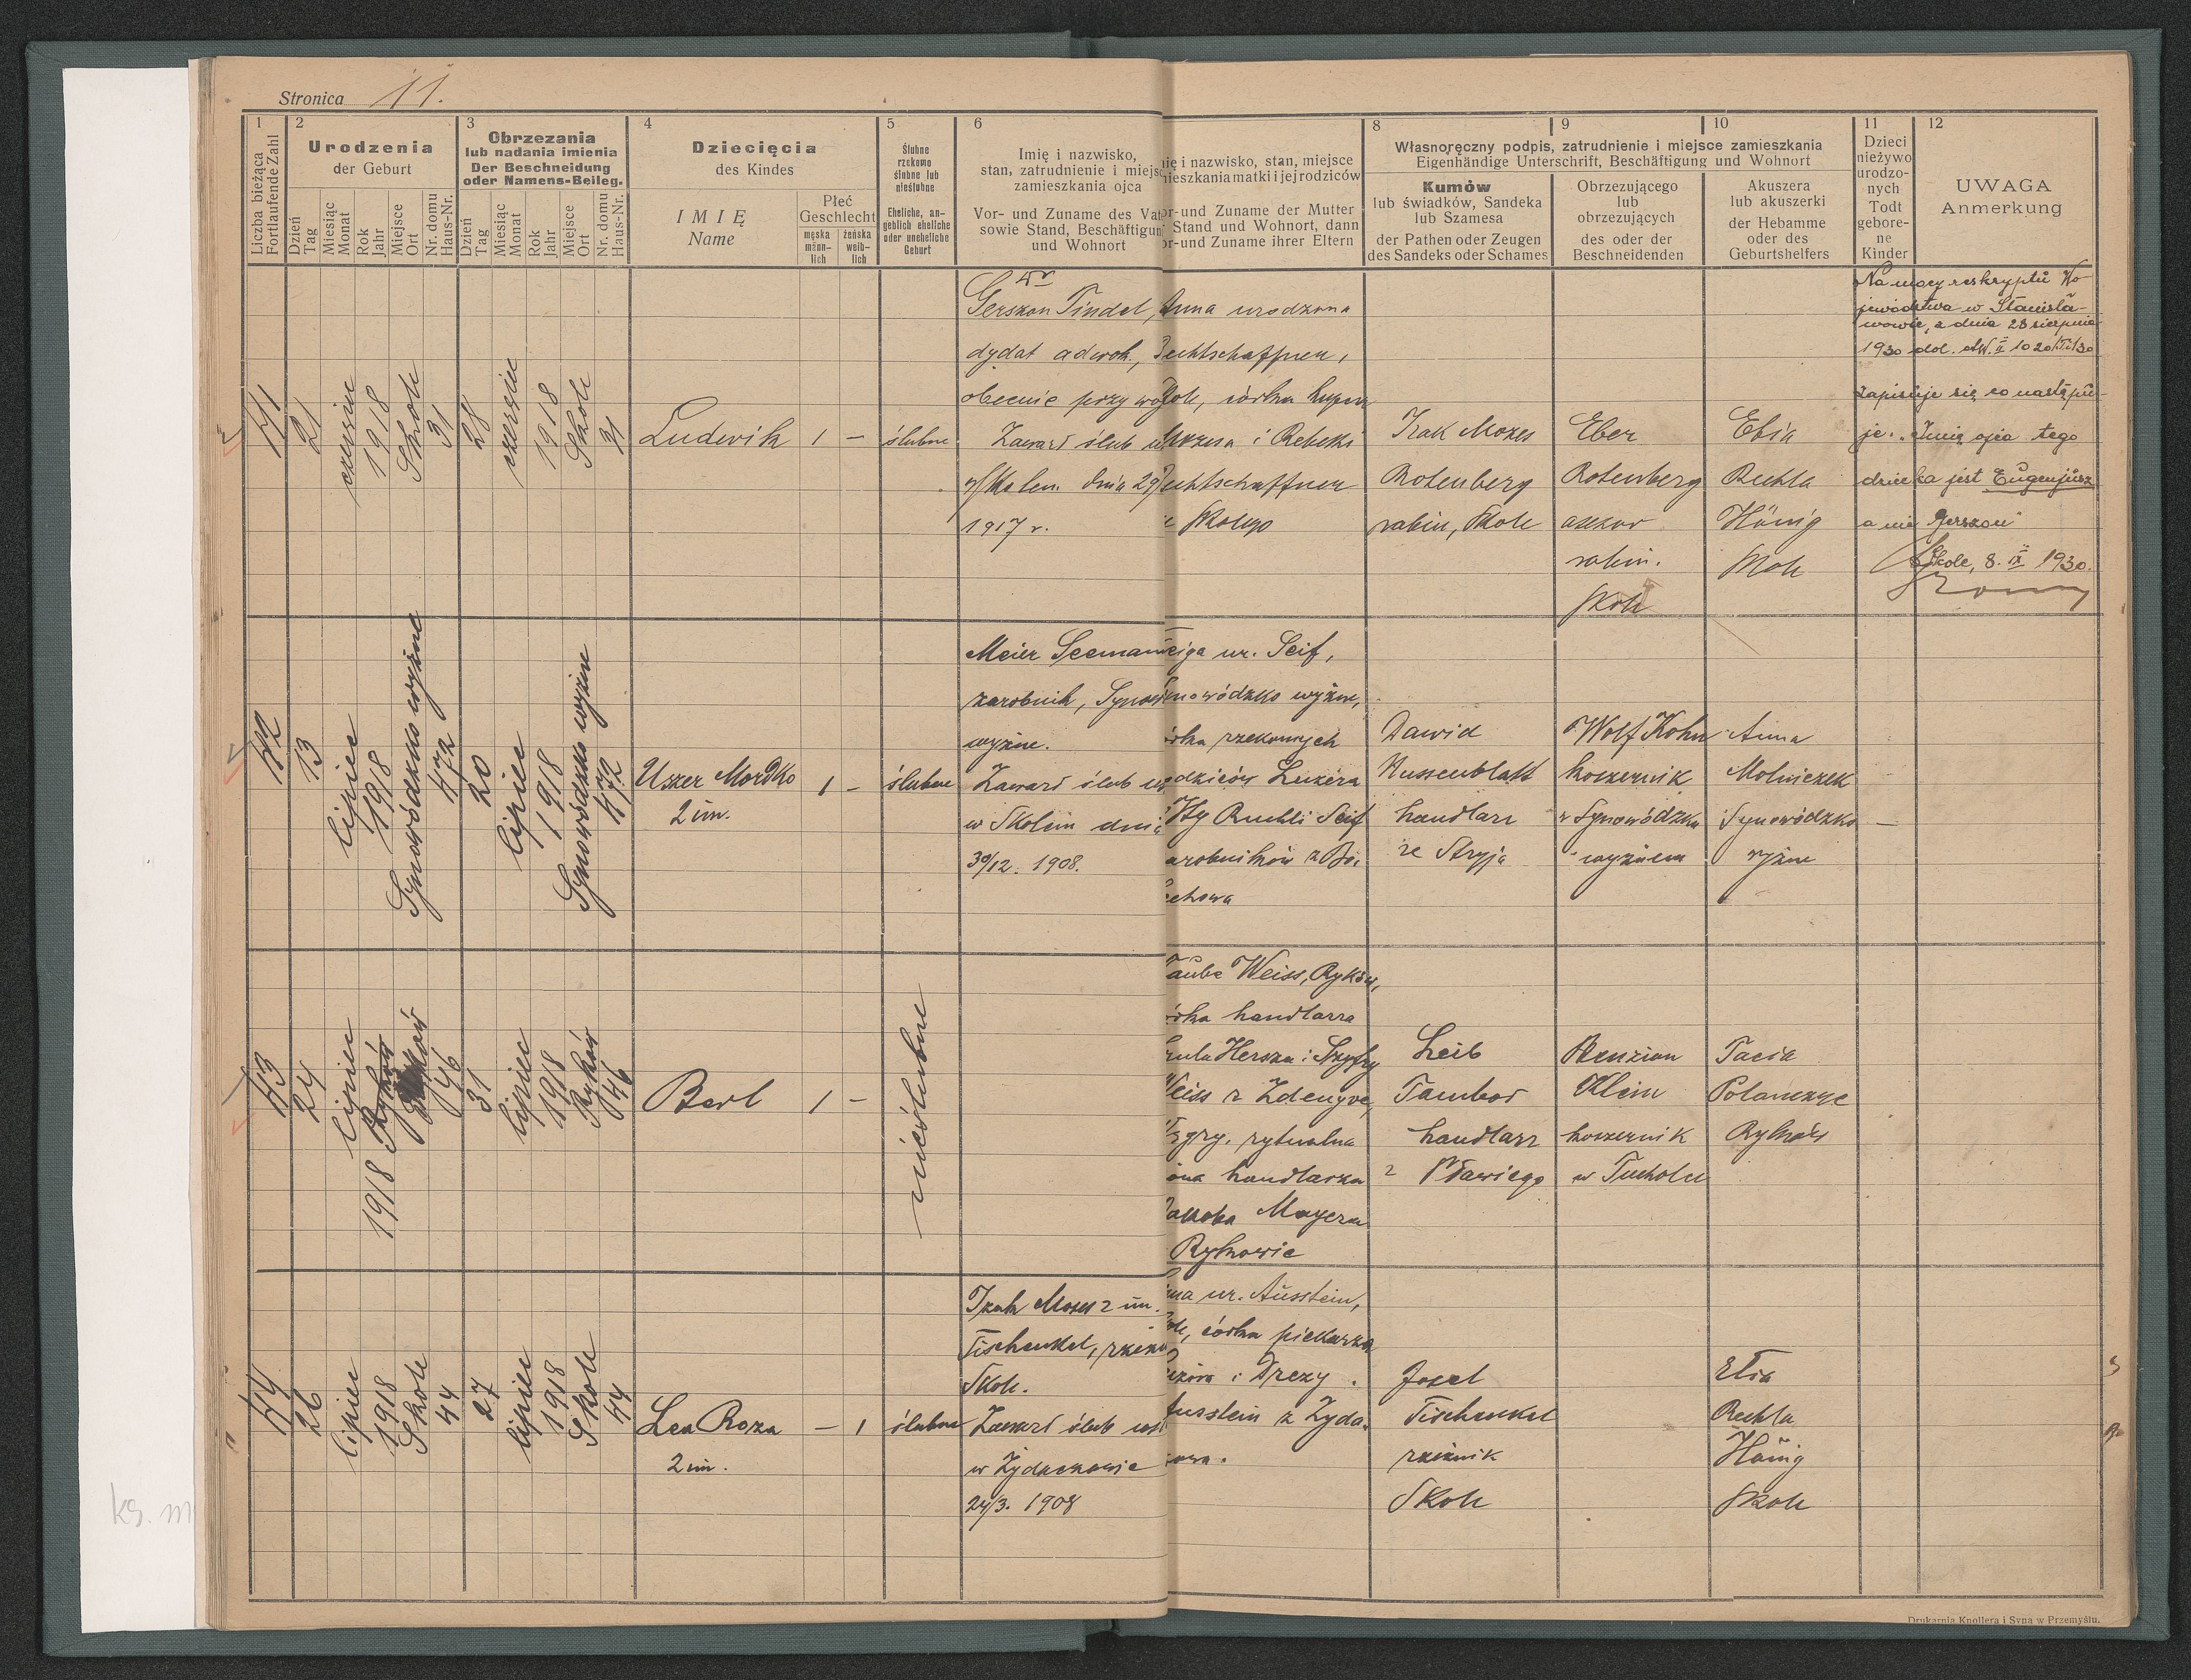 Stronica 11.
1
2
3
4
5
6
8
9
10
11
12
Liczba bieżąca
Fortlaufende Zahl
Urodzenia
der Geburt
Dzień
Tag
Miesiąc
Monat
Rok
Jahr
Miejsce
Ort
Nr. domu
Haus-Nr.
Obrzezania
lub nadania imienia
Der Beschneidung
oder Namens-Beileg.
Dzień
Tag
Miesiąc
Monat
Rok
Jahr
Miejsce
Ort
Nr. domu
Haus-Nr.
Dziecięcia
des Kindes
IMIĘ
Name
Płeć
Geschlecht
męska
männ-
lich
żeńska
weib-
lich
Ślubne
rzekomo
ślubne lub
nieślubne
Eheliche, an-
geblich eheliche
oder uneheliche
Geburt
Imię i nazwisko,
stan, zatrudnienie i miejsc
zamieszkania ojca
Vor- und Zuname des Vat
sowie Stand, Beschäftigun
und Wohnort
ię i nazwisko, stan, miejsce
ieszkania matki i jej rodziców
or-und Zuname der Mutter
Stand und Wohnort, dann
or-und Zuname ihrer Eltern
Własnoręczny podpis, zatrudnienie i miejsce zamieszkania
Eigenhändige Unterschrift, Beschäftigung und Wohnort
Kumów
lub świadków, Sandeka
lub Szamesa
der Pathen oder Zeugen
des Sandeks oder Schames
Obrzezującego
lub
obrzezujących
des oder der
Beschneidenden
Akuszera
lub akuszerki
der Hebamme
oder des
Geburtshelfers
Dzieci
nieżywo
urodzo-
nych
Todt
gebore-
ne
Kinder
UWAGA
Anmerkung
41
21
czerwiec
1918
Skole
31
28
czerwiec
1918
Skole
31
Ludwik
1
–
ślubne
Dr
Gerszon Tindel,
dydat adwok.,
obecnie przy wo
Zawarł ślub
w Skolem dnia 29
1917 r.
Anna urodzona
echtschaffner,
Skole, córka kupca
Mozesa i Rebeki
echtschaffner
Skolego
Izak Mozes
Rotenberg
rabin, Skole
Eber
Rotenberg
asesor
rabin.
Skole
Etia
Ruchla
Hönig
Skole
Na mocy reskryptu Wo-
jewództwa w Stanisła-
wowie, z dnia 28 sierpnia
1930
zapisuje się co następu-
je: „Imię ojca tego
dziecka jest Eugenjusz
a nie Gerszon"
Skole, 8. IX 1930.
42
13
lipiec
1918
Synowódzko wyżne
472
20
lipiec
1918
Synowódzko wyżne
472
Uszer Mordko
2 im.
1
–
ślubne
Meier Seeman
zarobnik, Synow
wyżne.
Zawarł ślub
w Skolem dnia
30/12. 1908.
eiga ur. Seif,
nowódzko wyżne,
órka rzekomych
dziców Luzera
Ity Ruchli Seif
arobników z Bo-
echowa
Dawid
Nussenblatt
handlarz
ze Stryja
Wolf Kohn
koszernik
w Synowódzku
wyżnem
Anna
Molniczek
Synowódzko
wyżne
–
43
24
lipiec
1918
Ryków
946
31
lipiec
1918
Ryków
946
Berl
1
–
nieślubne
Taube Weiss, Ryków,
órka handlarza
Hersza i Szyfry
Weiss z Zdenyve,
Węgry, rytualna
żona handlarza
Jakoba Mayera
Rykowie
Leib
Tambor
handlarz
z Pławiego
Benzion
Klein
koszernik
w Tucholce
Tacia
Polanczyc
Ryków
44
26
lipiec
1918
Skole
44
27
lipiec
1918
Skole
44
Lea Roza
2 im.
–
1
ślubne
Izak Moses 2 im.
Tischenkel, rzeź
Skole.
Zawarł ślub
w Żydaczowie
24/3. 1908
ur. Ausstein,
córka piekarza
i Drezy
Ausstein z Żyda-
zowa.
Josel
Tischenkel
rzeźnik
Skole
Etia
Ruchla
Hönig
Skole
Drukarnia Knollera i Syna w Przemyślu.